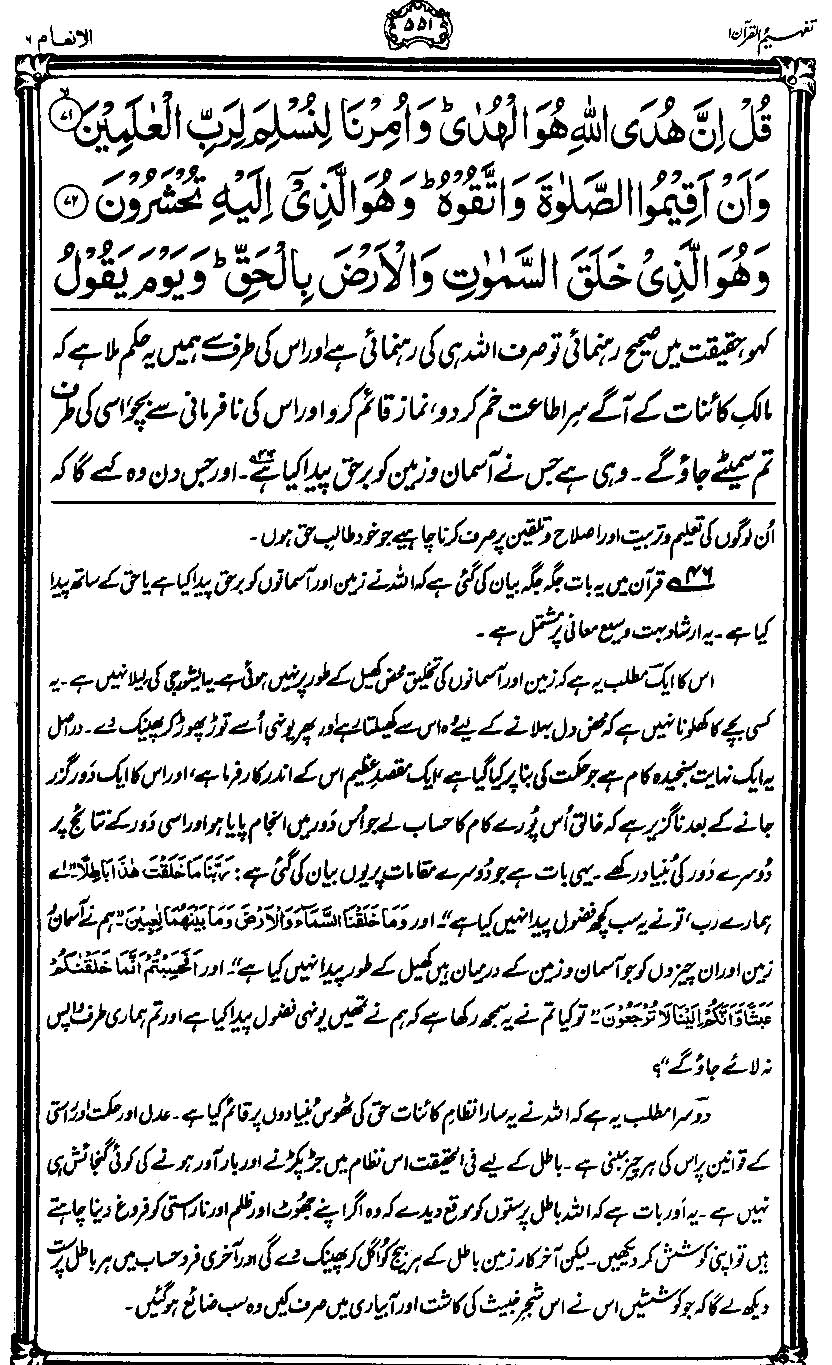 تفہیم القرآن ۱
۵۵۱
الانعام ۶
قُلْ اِنَّ هُدَى اللّٰهِ هُوَ الْهُدٰىؕ وَاُمِرْنَا لِنُسْلِمَ لِرَبِّ الْعٰلَمِيْنَۙ ﴿۷۱﴾
وَاَنْ اَقِيْمُوا الصَّلٰوةَ وَاتَّقُوْهُؕ وَهُوَ الَّذِيْٓ اِلَيْهِ تُحْشَرُوْنَ ﴿۷۲﴾
وَهُوَ الَّذِيْ خَلَقَ السَّمٰوٰتِ وَالْاَرْضَ بِالْحَقِّؕ وَيَوْمَ يَقُوْلُ
کہو، حقیقت میں صحیح رہنمائی تو صرف اللہ ہی کی رہنمائی ہے اور اس کی طرف سے ہمیں یہ حکم ملا ہے کہ
مالکِ کائنات کے آگے سرِ اطاعت خم کر دو، نماز قائم کرو اور اس کی نافرمانی سے بچو، اسی کی طرف
تم سمیٹے جاؤ گے۔ وہی ہے جس نے آسمان و زمین کو برحق پیدا کیا ہے۴۶۔ اور جس دن وہ کہے گا کہ
اُن لوگوں کی تعلیم و تربیت اور اصلاح و تلقین پر صرف کرنا چاہیے جو خود طالبِ حق ہوں۔
۴۶ قرآن میں یہ بات جگہ جگہ بیان کی گئی ہے کہ اللہ نے زمین اور آسمانوں کو برحق پیدا کیا ہے یا حق کے ساتھ پیدا
کیا ہے۔ یہ ارشاد بہت وسیع معانی پر مشتمل ہے۔
اس کا ایک مطلب یہ ہے کہ زمین اور آسمانوں کی تخلیق محض کھیل کے طور پر نہیں ہوئی ہے۔ یہ ایشور جی کی لیلا نہیں ہے۔ یہ
کسی بچے کا کھلونا نہیں ہے کہ محض دل بہلانے کے لیے وہ اس سے کھیلتا رہے اور پھر یونہی اُسے توڑ پھوڑ کر پھینک دے۔ دراصل
یہ ایک نہایت سنجیدہ کام ہے جو حکمت کی بنا پر کیا گیا ہے، ایک مقصدِ عظیم اس کے اندر کارفرما ہے، اور اس کا ایک دَور گزر
جانے کے بعد ناگزیر ہے کہ خالق اُس پُورے کام کا حساب لے جو اُس دَور میں انجام پایا ہو اور اسی دَور کے نتائج پر
دُوسرے دَور کی بُنیاد رکھے۔ یہی بات ہے جو دُوسرے مقامات پر یوں بیان کی گئی ہے: رَبَّنَا مَا خَلَقْتَ هٰذَا بَاطِلًا۔ "اے
ہمارے رب، تو نے یہ سب کچھ فضول پیدا نہیں کیا ہے"۔ اور وَمَا خَلَقْنَا السَّمَآءَ وَالْاَرْضَ وَمَا بَيْنَهُمَا لٰعِبِيْنَ۔ "ہم نے آسمان و
زمین اور ان چیزوں کو جو آسمان و زمین کے درمیان ہیں کھیل کے طور پیدا نہیں کیا ہے"۔ اور اَفَحَسِبْتُمْ اَنَّمَا خَلَقْنٰكُمْ
عَبَثًا وَّاَنَّكُمْ اِلَيْنَا لَا تُرْجَعُوْنَ۔ "تو کیا تم نے یہ سمجھ رکھا ہے کہ ہم نے تمھیں یونہی فضول پیدا کیا ہے اور تم ہماری طرف واپس
نہ لائے جاؤ گے"؟
دوسرا مطلب یہ ہے کہ اللہ نے یہ سارا نظامِ کائنات حق کی ٹھوس بُنیادوں پر قائم کیا ہے۔ عدل اور حکمت اور راستی
کے قوانین پر اس کی ہر چیز مبنی ہے۔ باطل کے لیے فی الحقیقت اس نظام میں جڑ پکڑنے اور بار آور ہونے کی کوئی گنجائش ہی
نہیں ہے۔ یہ اَور بات ہے کہ اللہ باطل پرستوں کو موقع دیدے کہ وہ اگر اپنے جھُوٹ اور ظلم اور ناراستی کو فروغ دینا چاہتے
ہیں تو اپنی کوشش کر دیکھیں۔ لیکن آخرکار زمین باطل کے ہر بیج کو اُگل کر پھینک دے گی اور آخری فردِ حساب میں ہر باطل پرست
دیکھ لے گا کہ جو کوششیں اس نے اس شجرِ خبیث کی کاشت اور آبیاری میں صرف کیں وہ سب ضائع ہو گئیں۔